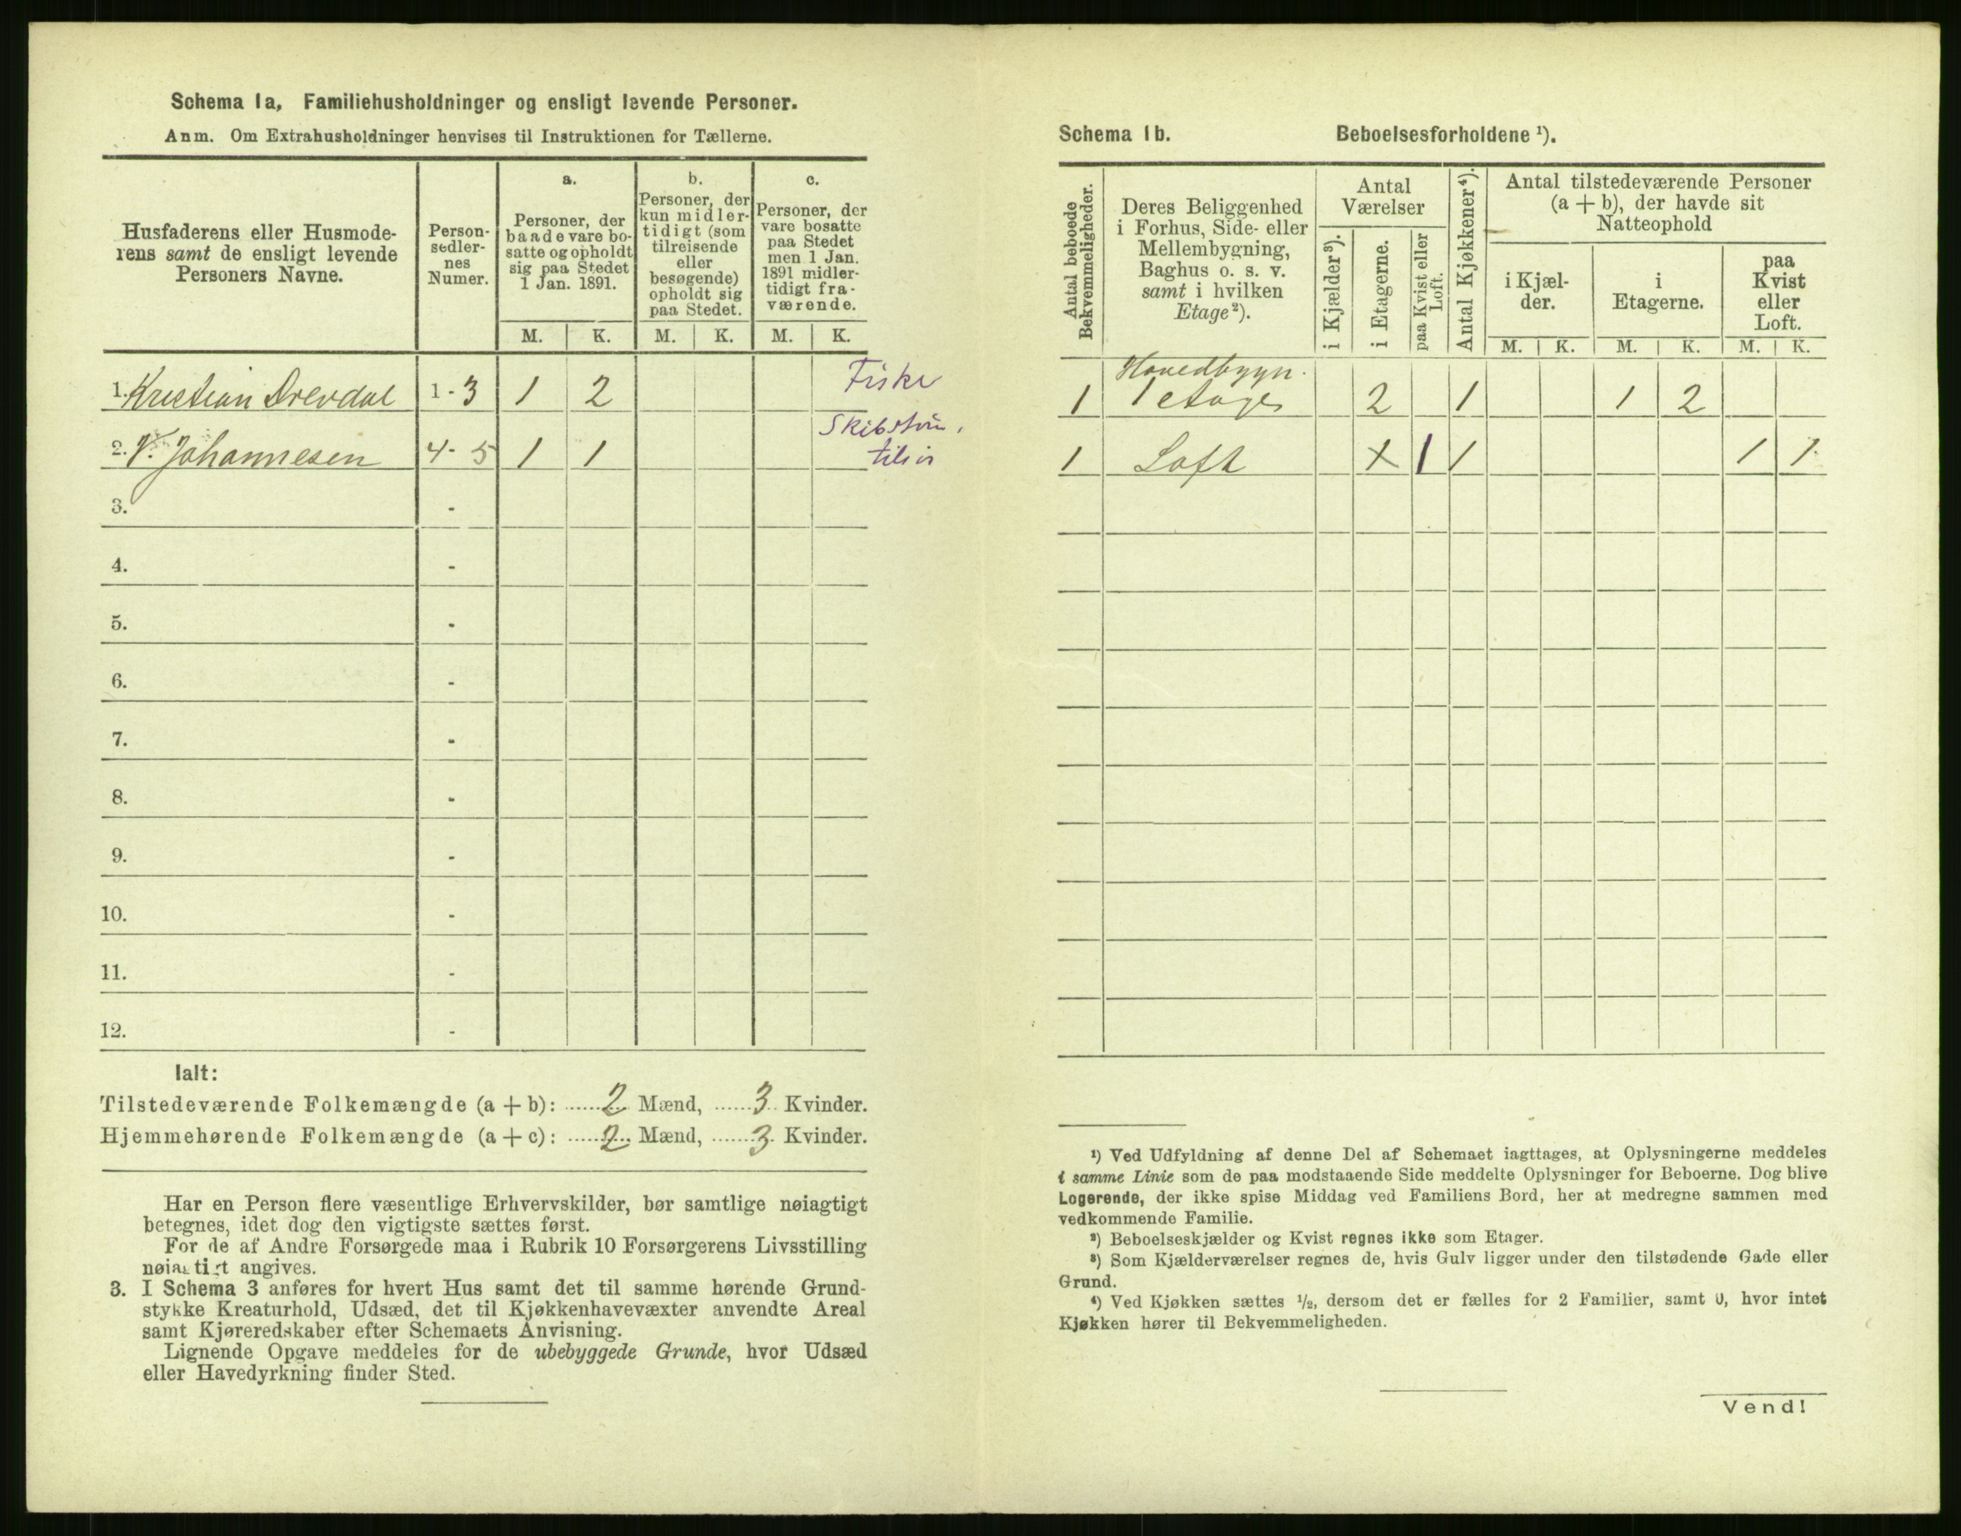 Schema 1a, Familiehusholdninger og ensligt levende Personer.
Anm. Om Extrahusholdninger henvises til Instruktionen for Tællerne.
Husfaderens eller Husmode-
rens samt de ensligt levende
Personers Navne.
Person-
sedler-
nes
Numer.
a.
Personer, der
baade vare bo-
satte og opholdt
sig paa Stedet
1 Jan. 1891.
b.
Personer, der
kun midler-
tidigt (som
tilreisende
eller
besøgende)
opholdt sig
paa Stedet.
c.
Personer, der
vare bosatte
paa Stedet
men 1 Jan.
1891 midler-
tidigt fra-
værende.
M. K. M. K. M. K.
1. Kristian Drevdal 1 - 3 1 2 Fiske
2. V. Johannesen 4 - 5 1 1
3. -
4. -
5. -
6. -
7. -
8. -
9. -
10. -
11. -
12. -
Ialt:
Tilstedeværende Folkemængde (a + b): 2 Mænd, 3 Kvinder.
Hjemmehørende Folkemængde (a + c): 2 Mænd, 3 Kvinder.
Har en Person flere væsentlige Erhvervskilder, bør samtlige nøiagtigt
betegnes, idet dog den vigtigste sættes først.
For de af Andre Forsørgede maa i Rubrik 10 Forsørgerens Livsstilling
nøiagtigt angives.
3. I Schema 3 anføres for hvert Hus samt det til samme hørende Grund-
stykke Kreaturhold, Udsæd, det til Kjøkkenhavevæxter anvendte Areal
samt Kjøreredskaber efter Schemaets Anvisning.
Lignende Opgave meddeles for de ubebyggede Grunde, hvor Udsæd
eller Havedyrkning finder Sted.
Schema 1b. Beboelsesforholdene ¹).
Antal beboede
Bekvemmeligheder.
Deres Beliggenhed
i Forhus, Side- eller
Mellembygning,
Baghus o. s. v.
samt i hvilken
Etage²).
Antal
Værelser
i Kjælder³).
i Etagerne.
paa Kvist eller
Loft.
Antal Kjøkkener⁴).
Antal tilstedeværende Personer
(a + b), der havde sit
Natteophold
i Kjæl-
der.
i
Etagerne.
paa
Kvist
eller
Loft.
M. K. M. K. M. K.
Hovedbygn.
1 1 etages 2 1 1 2
1 Loft x 1 1 1 1
¹) Ved Udfyldning af denne Del af Schemaet iagttages, at Oplysningerne meddeles
i samme Linie som de paa modstaaende Side meddelte Oplysninger for Beboerne. Dog blive
Logerende, der ikke spise Middag ved Familiens Bord, her at medregne sammen med
vedkommende Familie.
²) Beboelseskjælder og Kvist regnes ikke som Etager.
³) Som Kjælderværelser regnes de, hvis Gulv ligger under den tilstødende Gade eller
Grund.
⁴) Ved Kjøkken sættes ½, dersom det er fælles for 2 Familier, samt 0, hvor intet
Kjøkken hører til Bekvemmeligheden.
Vend!